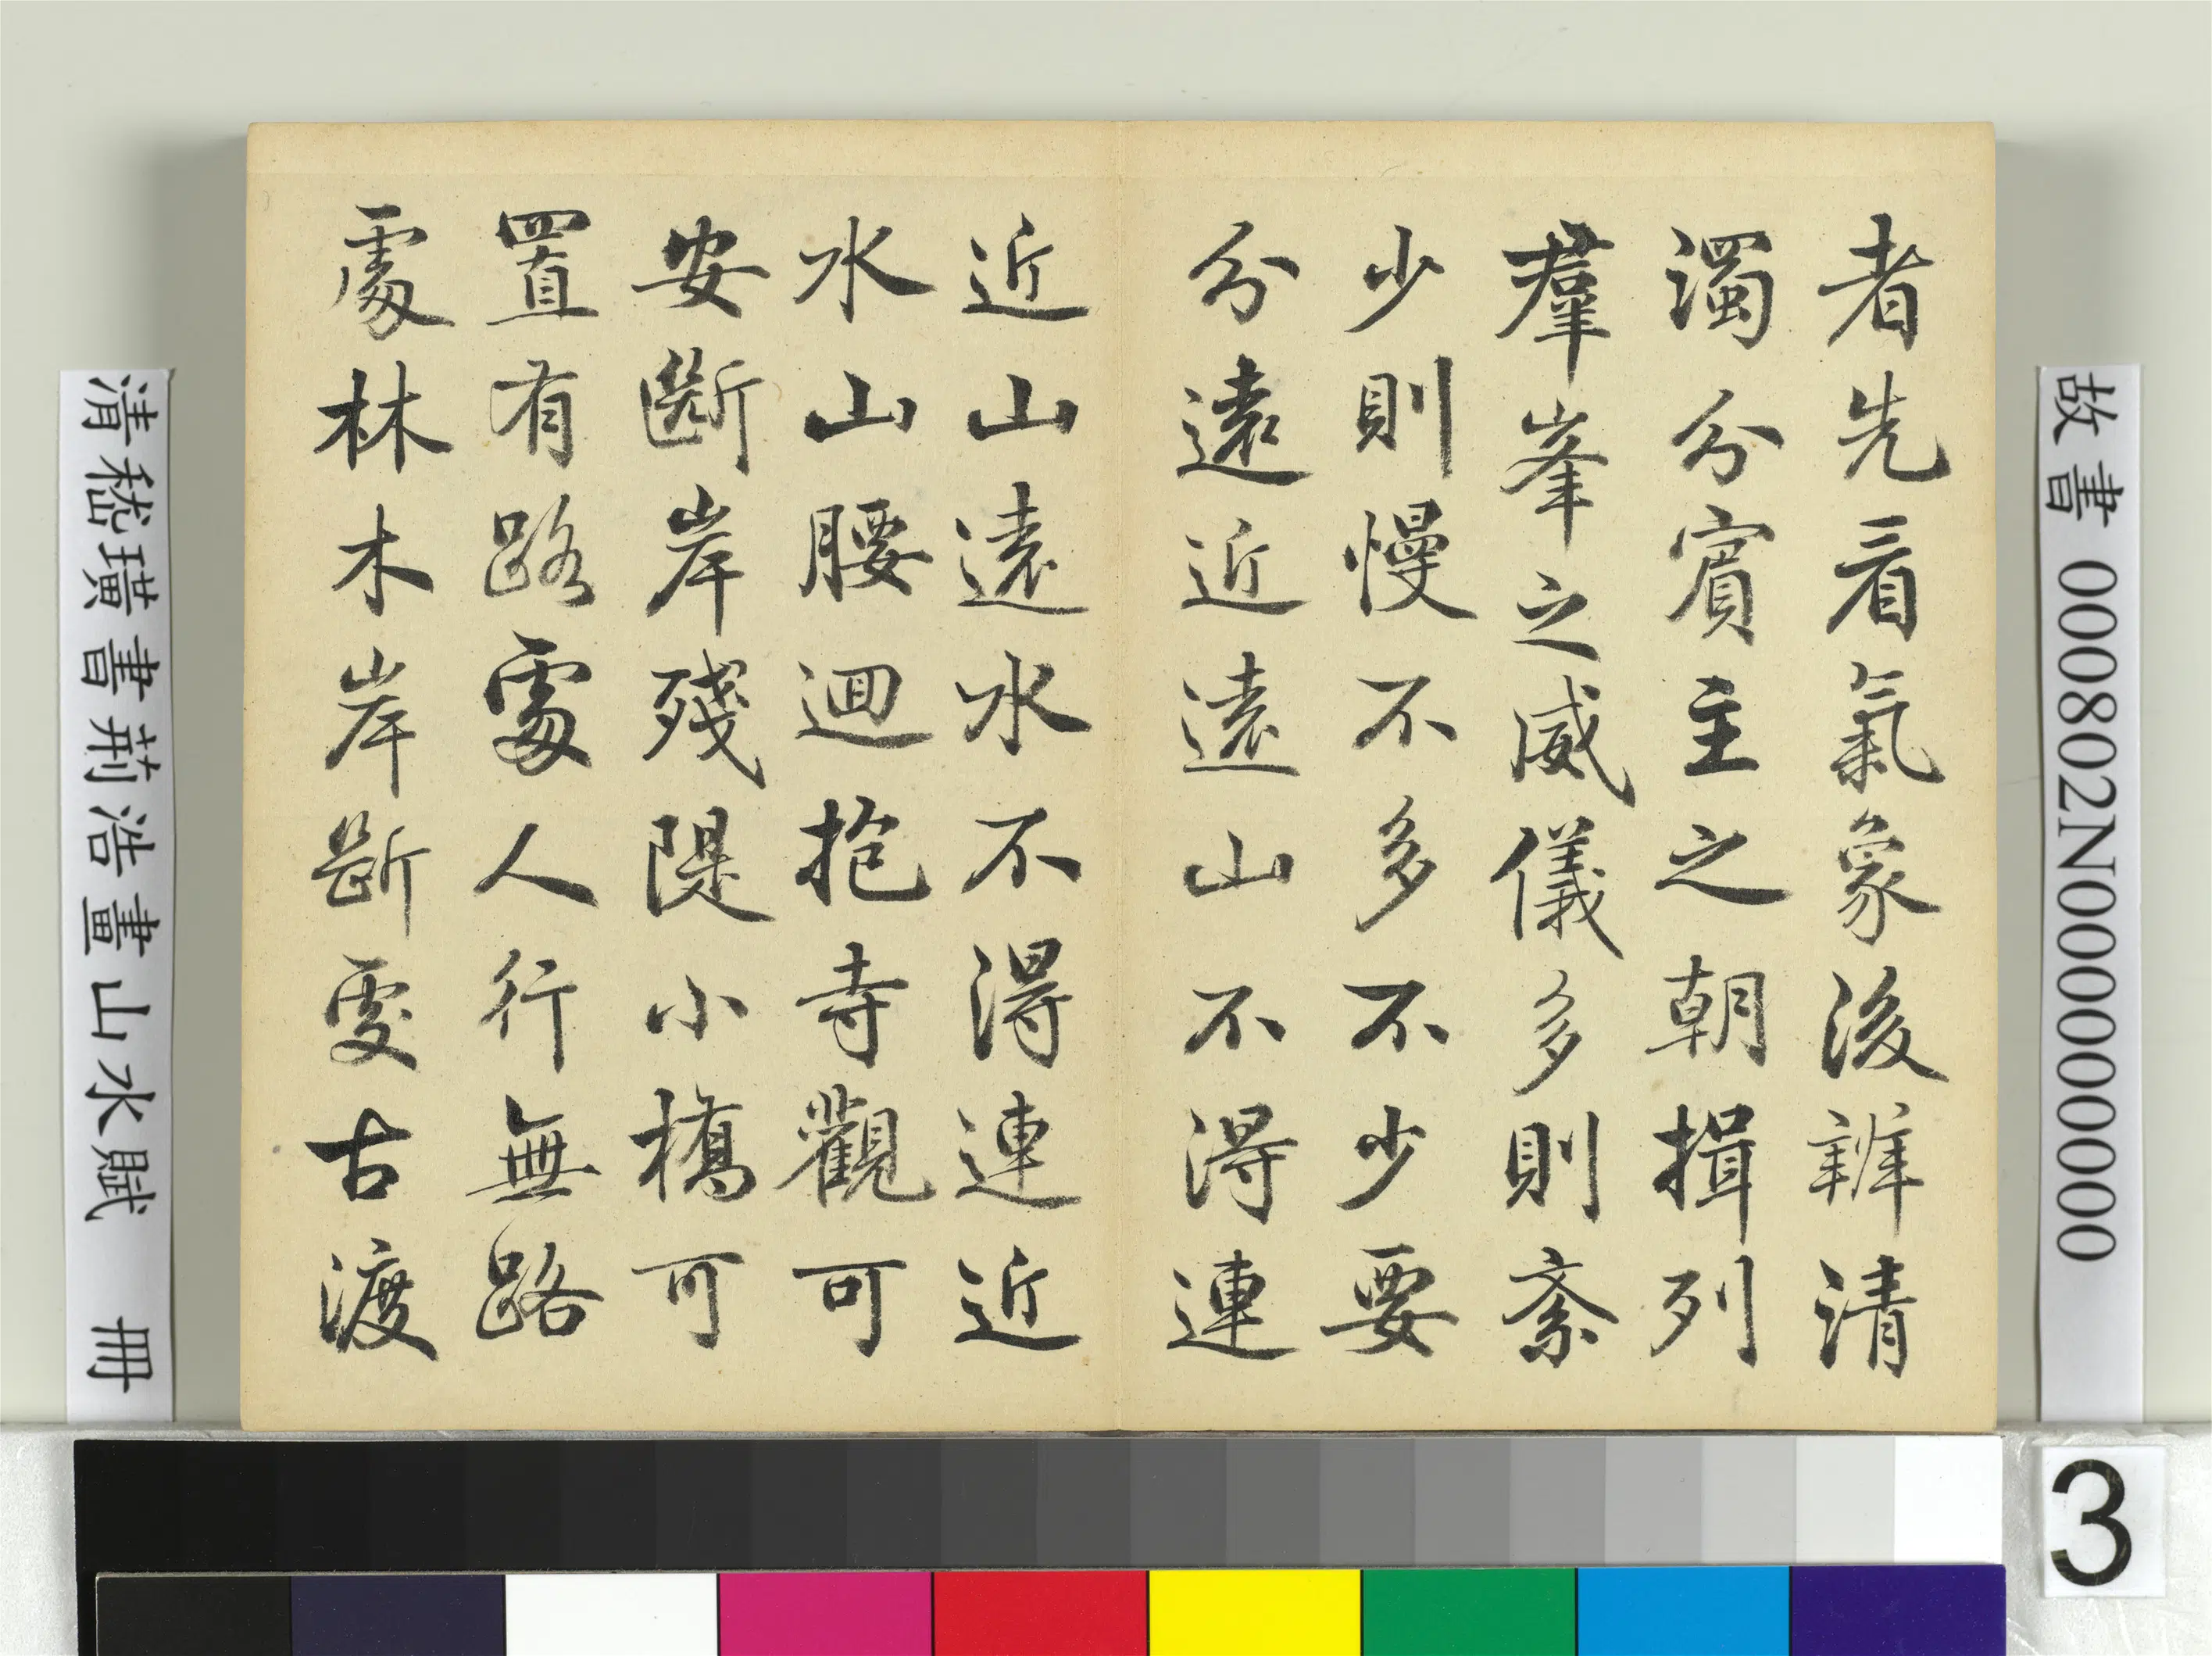 故書 000802N000000000
者先看氣象後辨清
濁分賓主之朝揖列
羣峯之威儀多則紊
少則慢不多不少要
分遠近遠山不得連
近山遠水不得連近
水山腰迴抱寺觀可
安斷岸殘隄小橋可
置有路處人行無路
處林木岸斷處古渡
清嵇璜書荊浩畫山水賦 冊
3